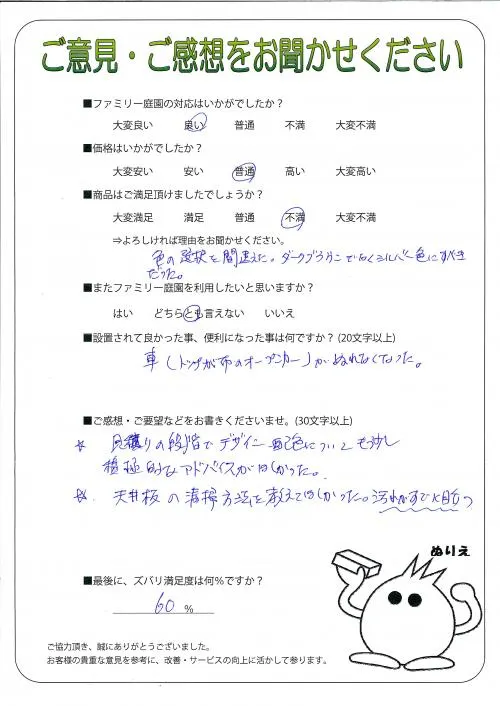 ご意見・ご感想をお聞かせください
■ファミリー庭園の対応はいかがでしたか？
大変良い 良い 普通 不満 大変不満
■価格はいかがでしたか？
大変安い 安い 普通 高い 大変高い
■商品はご満足頂けましたでしょうか？
大変満足 満足 普通 不満 大変不満
⇒よろしければ理由をお聞かせください。
色の選択を間違えた。ダークブラウンでなくシルバー色にすべき
だった。
■またファミリー庭園を利用したいと思いますか？
はい どちらとも言えない いいえ
■設置されて良かった事、便利になった事は何ですか？(20文字以上)
車（トップが布のオープンカー）がぬれなくなった。
■ご感想・ご要望などをお書きくださいませ。(30文字以上)
* 見積りの段階でデザイン 配色についてもう少し
積極的なアドバイスがほしかった。
* 天井板の清掃方法を教えてほしかった。汚れがすぐ目立つ
ぬりえ
■最後に、ズバリ満足度は何％ですか？
60 ％
ご協力頂き、誠にありがとうございました。
お客様の貴重な意見を参考に、改善・サービスの向上に活かして参ります。